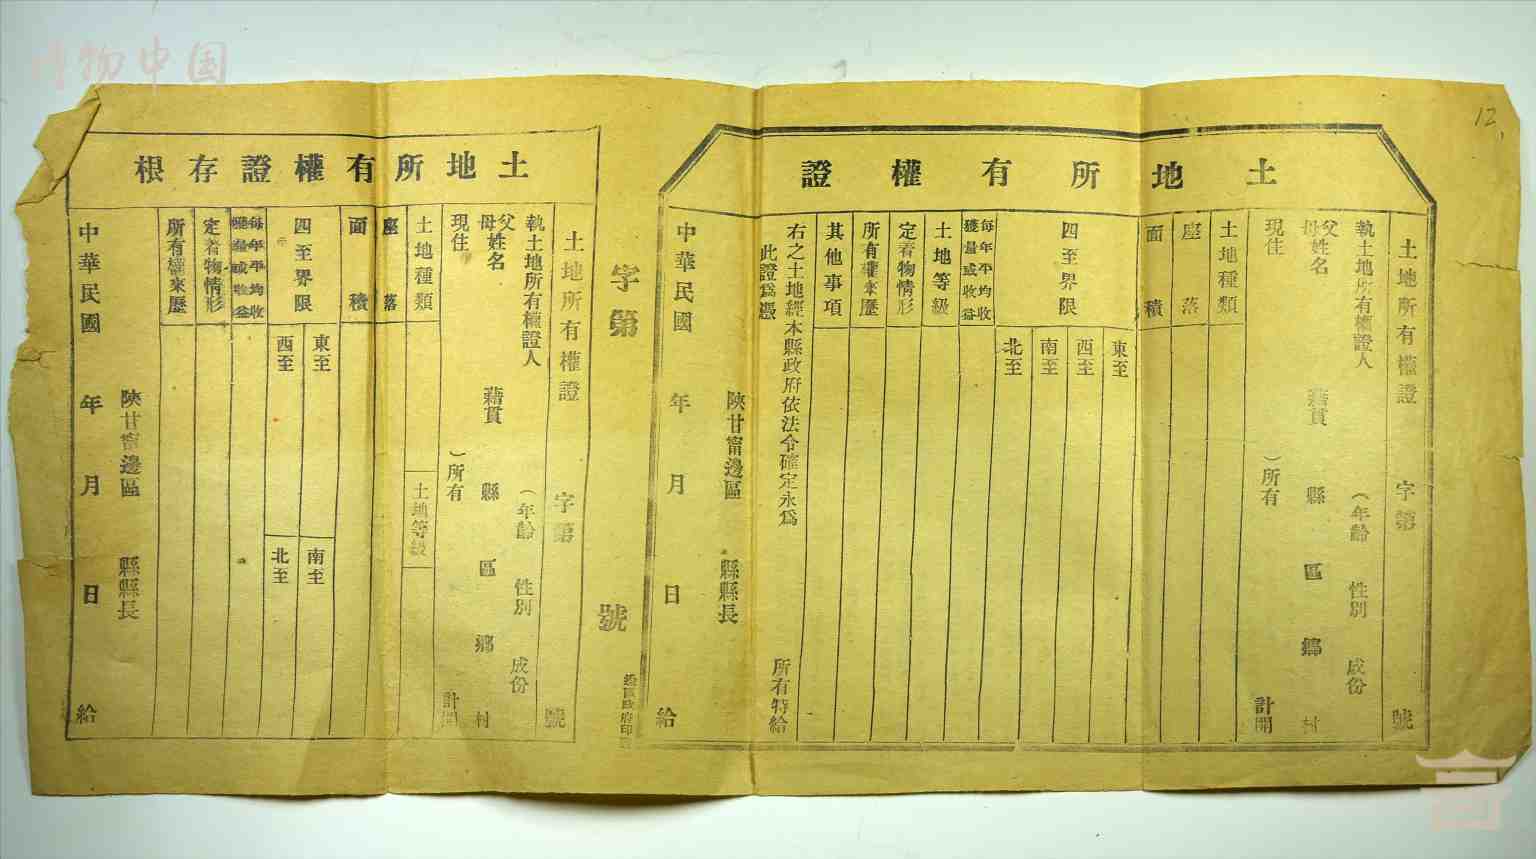 博物中国
12
土地所有權證
土地所有權證 字第 號
執土地所有權證人 (年齡 性別 成份
父母姓名 藉貫 縣 區 鄉 村
現住 )所有 計開
土地種類
座落
面積
四至界限
東至
西至
南至
北至
每年平均收
獲量或收益
土地等級
定著物情形
所有權來歷
其他事項
右之土地經本縣政府依法令確定永爲 所有特給
此證爲憑
陝甘甯邊區 縣縣長
中華民國 年 月 日 給
字第 號
土地所有權證存根
土地所有權證 字第 號
執土地所有權證人 (年齡 性別 成份
父母姓名 藉貫 縣 區 鄉 村
現住 )所有 計開
土地種類
土地等級
座落
面積
四至界限
東至
南至
西至
北至
每年平均收
獲量或收益
定著物情形
所有權來歷
陝甘甯邊區 縣縣長
中華民國 年 月 日 給